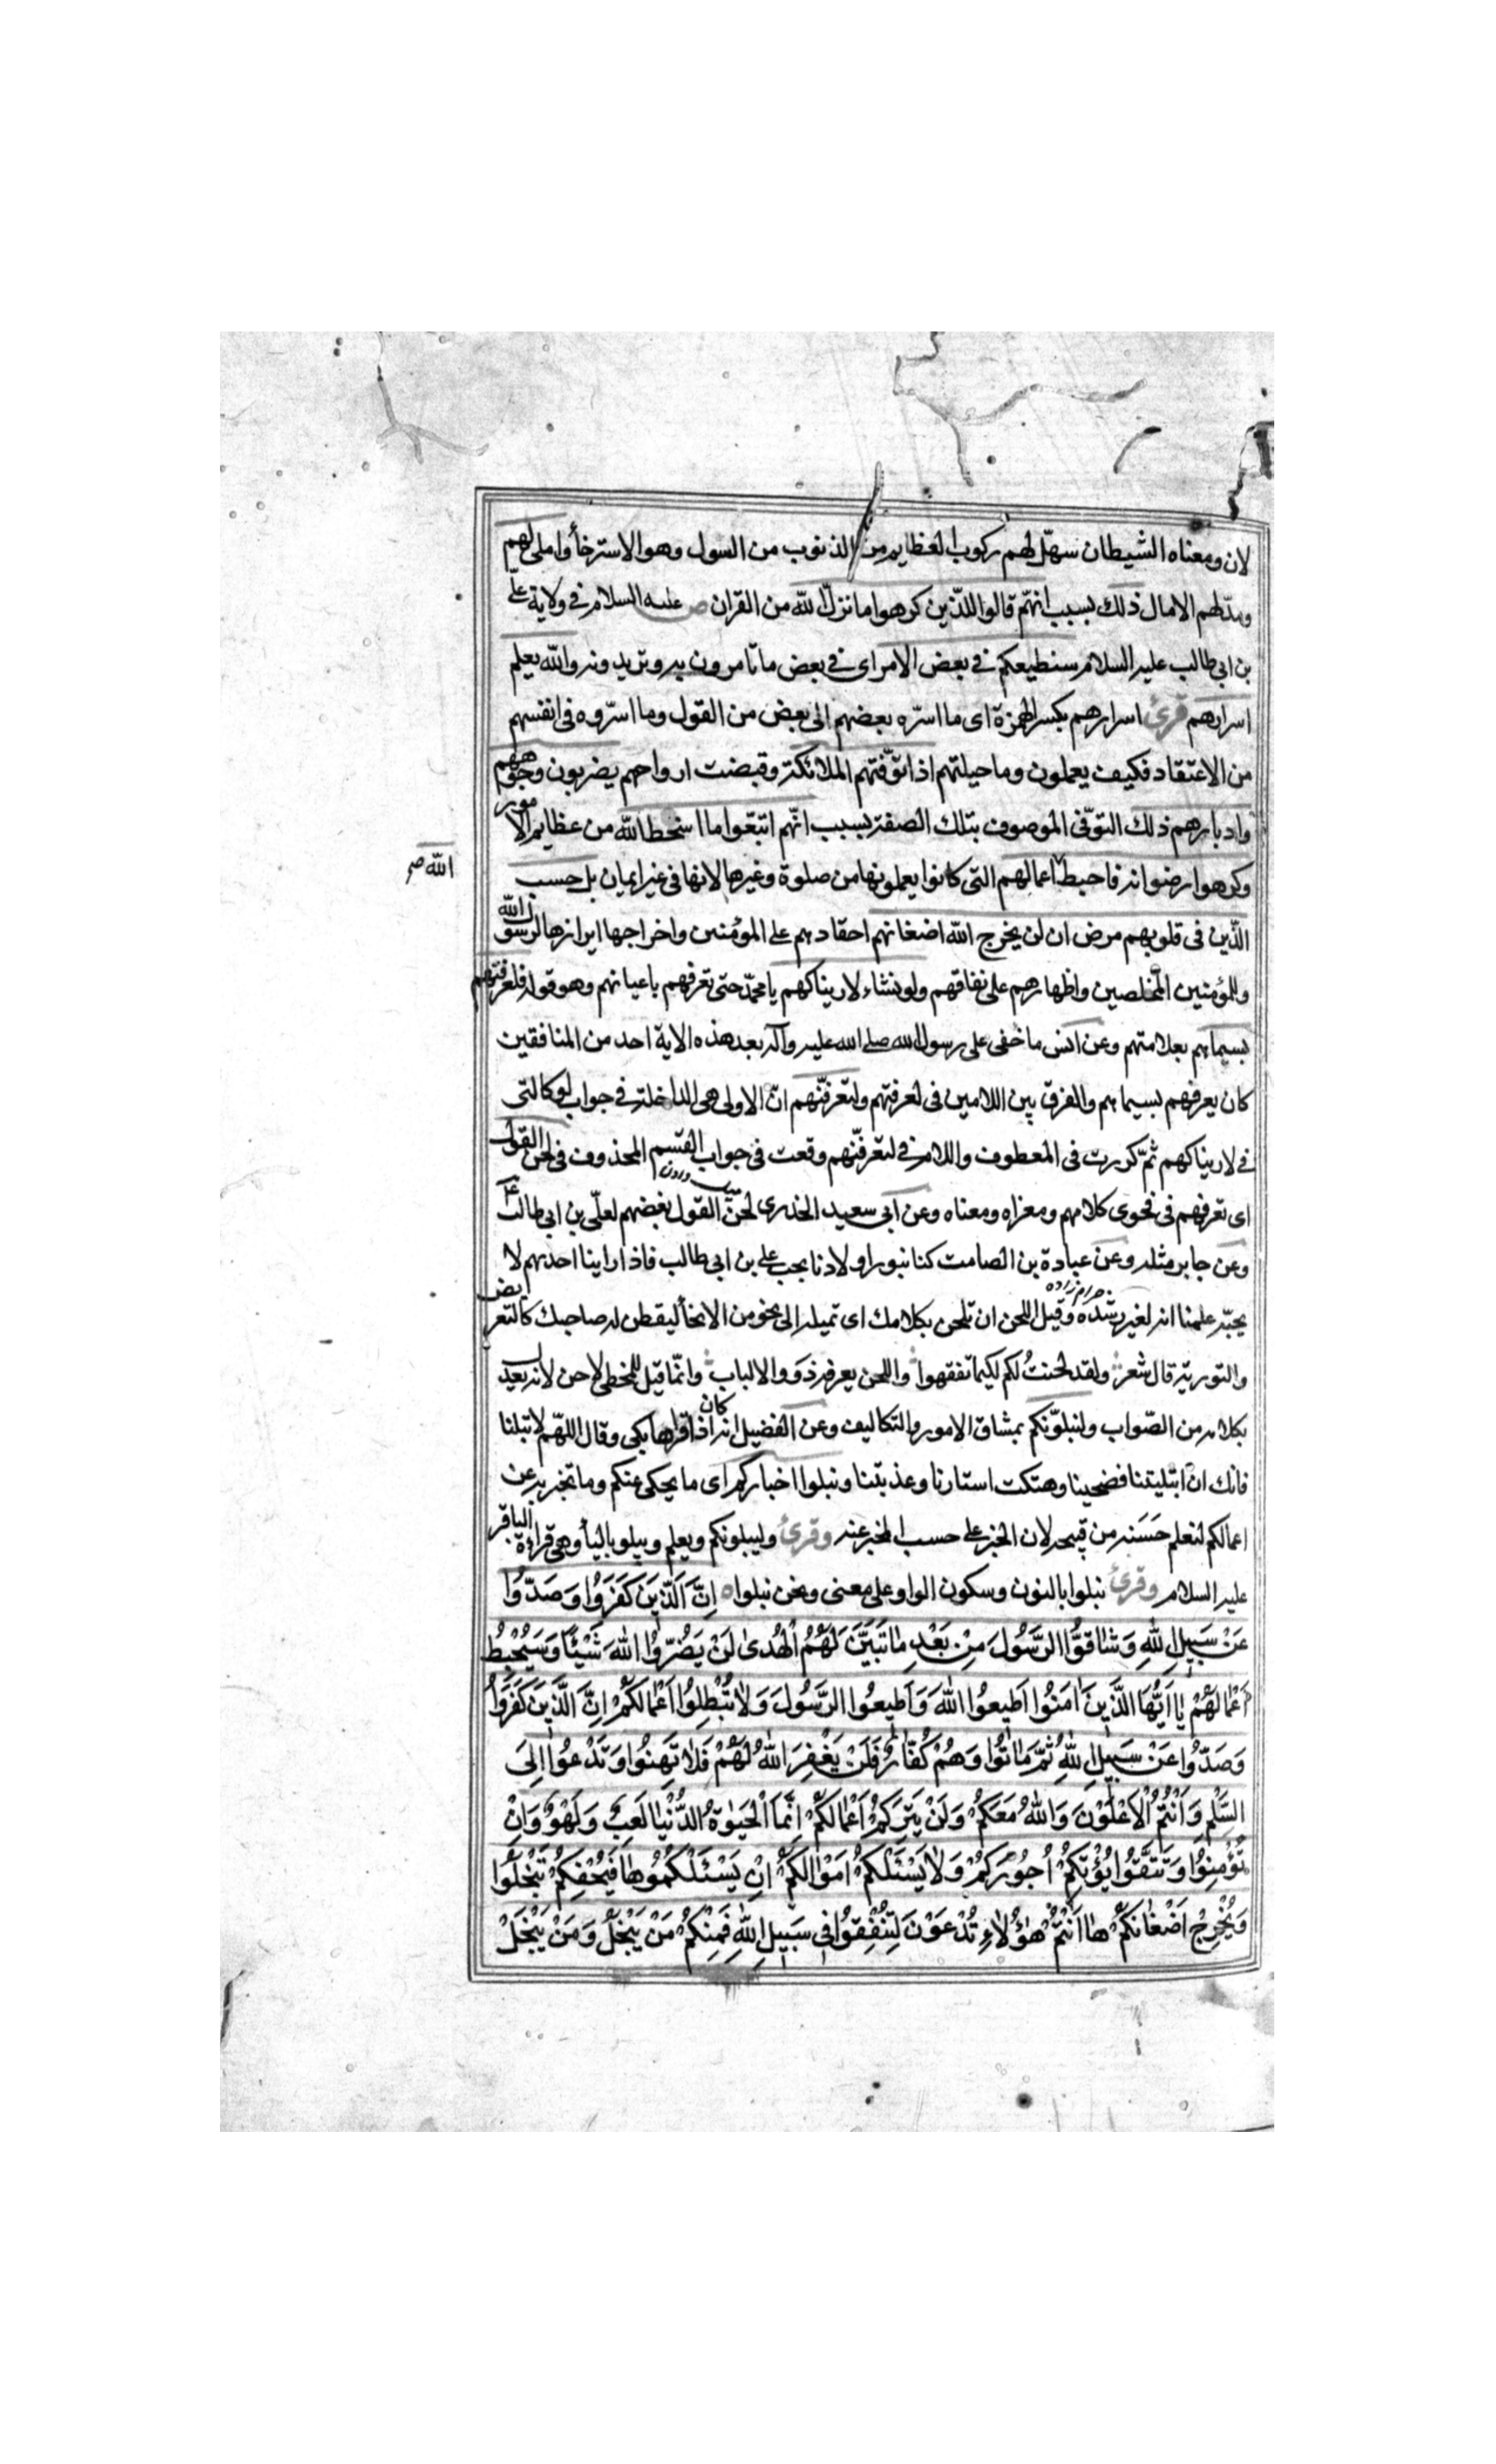 لان ومعناه الشيطان سهّل لهم ركوب العظايم من الذنوب من السول وهو الاسترخأ واملى لهم
ومدّ لهم الامال ذلك بسبب انهّم قالوا للذّين كرهوا ما نزل الله من القران عليه السلام فى ولاية علّى
بن ابى طالب عليه السلام سنطيعكم فى بعض الامر اى فى بعض ما تامرون به وتريدونه والله يعلم
اسرارهم قرئ اسرارهم بكسر الهمزة اى ما اسرّه بعضهم الى بعض من القول وما اسرّوه فى انفسهم
من الاعتقاد فكيف يعملون وما حيلتهم اذا توّفتهم الملائكة وقبضت ارواحهم يضربون وجوههم
وادبارهم ذلك التوّفى الموصوف بتلك الصفة بسبب انّهم اتبّعوا ما اسخط الله من عظايم الامور
وكرهوا رضوانه فاحبط اعمالهم التى كانوا يعملونها من صلوة وغيرها لانها فى غير ايمان بل حسب
الله صح
الّذين فى قلوبهم مرض ان لن يخرج الله اضغانهم احقادهم على المؤمنين واخراجها ابرازها لرسول الله
وللمؤمنين المخلصين واظهارهم على نفاقهم ولو نشاء لاريناكهم يا محمّد حتى تعرفهم باعيانهم وهو قوله فلعرفتهم
بسيماهم بعلامتهم وعن انس ما خفى على رسول الله صلى الله عليه وآله بعد هذه الاية احد من المنافقين
كان يعرفهم بسيماهم والفرق بين اللامين فى لعرفتهم ولتعرفنّهم انّ الاولى هى الداخلة فى جواب لو كالتى
فى لاريناكهم ثمّ كررت فى المعطوف واللام فى لتعرفنّهم وقعت فى جواب القسم المحذوف فى لحن القول
اى تعرفهم فى فحوى كلامهم ومغزاه ومعناه وعن ابى سعيد الخدرى لحن القول بغضهم لعلّى بن ابى طالب ع
وعن جابر مثله وعن عبادة بن الصامت كنا نبور اولادنا بحب على بن ابى طالب فاذا راينا احدهم لا
يحبّه علمنا انه لغير رشده حرام زاده وقيل اللحن ان تلحن بكلامك اى تميله الى نحو من الانحأ ليفطن له صاحبك كالتعريض
والتورية قال شعر ولقد لحنتُ لكم لكيما تفقهوا واللحن يعرفه ذوو الالباب وانّما قيل للمخطى لاحن لانه يعدل
بكلامه من الصّواب ولنبلونّكم بمشاق الامور والتكاليف وعن الفضيل انه كان اذا قراها بكى وقال اللهّم لا تبلنا
فانك ان ابتليتنا فضحتنا وهتكت استارنا وعذبتنا ونبلوا اخباركم اى ما يحكى عنكم وما تخبر به عن
اعمالكم لنعلم حَسَنه من قبيحه لان الخبر على حسب المخبر عنه وقرئ وليبلونكم ويعلم ويبلو باليأ وهى قراءة الباقر
عليه السلام وقرئ نبلوا بالنون وسكون الواو على معنى ونحن نبلوا ه اِنَّ اَلَّذينَ كَفَرَوُا وَصَدّوُا
عَنْ سَبيلِ اللهِ وَشاقوُّا الرَّسُولَ مِنْ بَعْدِ ما تَبَيَّنَ لَهُمُ اْلهُدى لَنْ يَضُرّوُا اللهَ شَيْئًا وَسَيُحْبِطُ
اَعْمالَهُمْ يا اَيُّهَا الَّذينَ امَنوُا اَطيعوُا اللهَ وَاَطيعوُا الرَّسُولَ وَلا تُبْطِلوُا اَعْمالَكُمْ اِنَّ الَّذينَ كَفَرَوُا
وَصَدّوُا عَنْ سَبيلِ اللهِ ثُمَّ ماتوُا وَهُمْ كُفّارٌ فَلَنْ يَغْفِرَ اللهُ لَهُمْ فَلا تَهِنوُا وَتَدْعوُا اِلَى
السَّلْمِ وَاَنْتُمُ اْلاَعْلَوْنَ وَاللهُ مَعَكُمْ وَلَنْ يَتِرَكُمْ اَعْمالَكُمْ اِنَّمَا اْلحَيوةُ الدُّنْيا لَعِبٌ وَلَهْوٌ وَاِنْ
تُؤْمِنوُا وَتَتَّقوُا يُؤْتِكُمْ اُجوُرَكُمْ وَلا يَسْئَلْكُمْ اَمْوالَكُمْ اِنْ يَسْئَلْكُموُها فَيُحْفِكُمْ تَبْخَلوُا
وَيُخْرِجْ اَضْغانَكُمْ ها اَنْتُمْ هؤُلاءِ تُدْعَوْنَ لِتُنْفِقوُا فى سَبيلِ اللهِ فَمِنْكُمْ مَنْ يَبْخَلُ وَمَنْ يَبْخَلْ